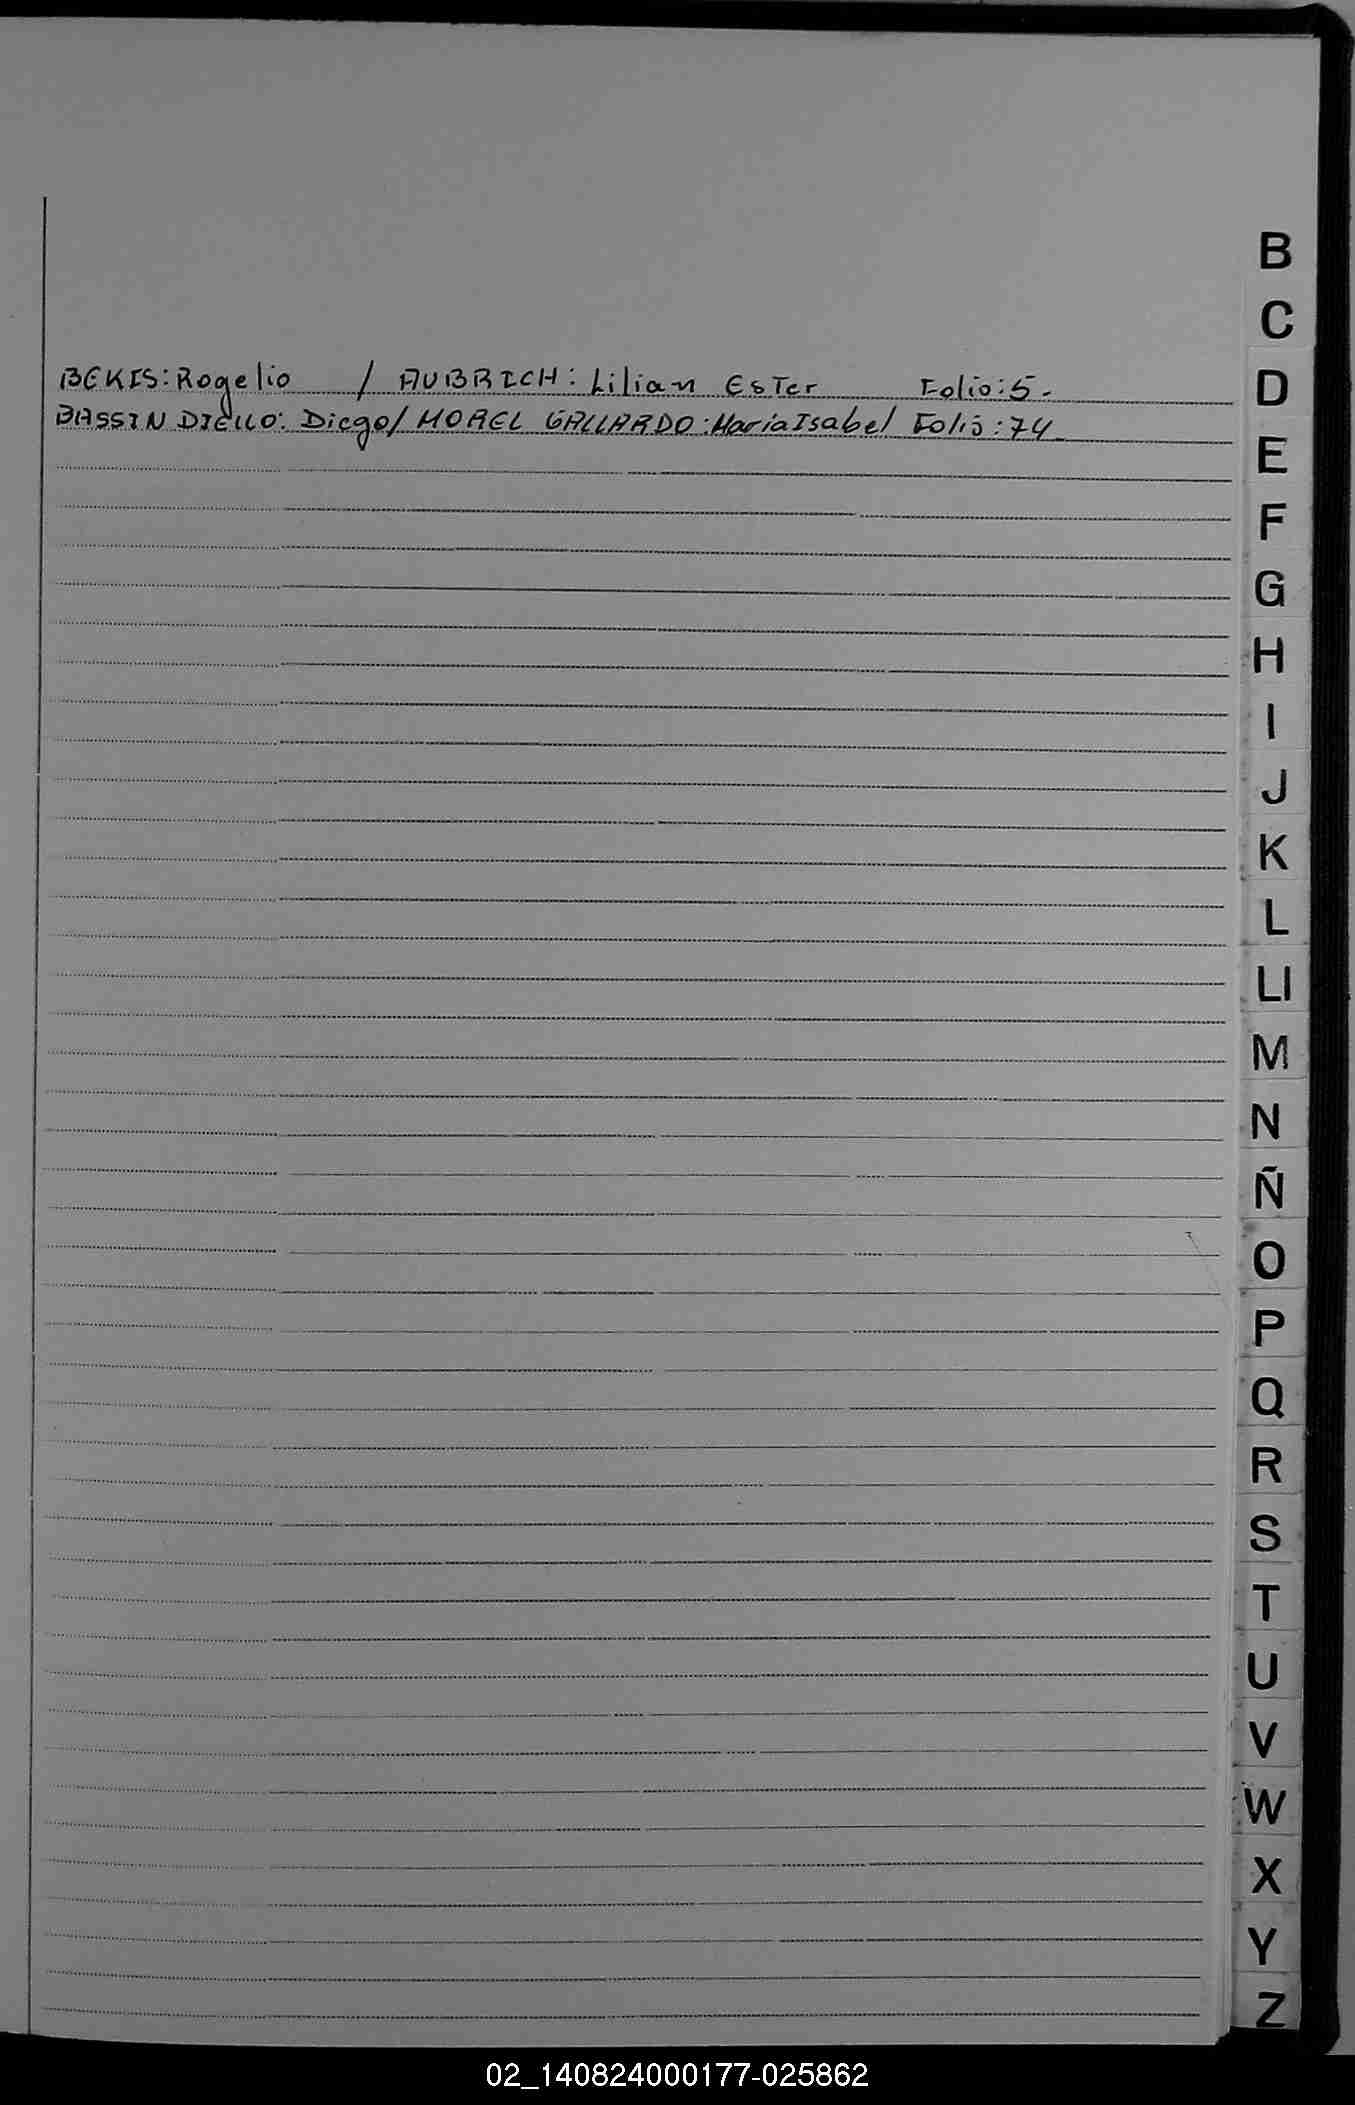 B
C
BEKIS: Rogelio / AUBRICH: Lilian Ester Folio: 5.
D
BASSIN DIELLO: Diego / MOREL GALLARDO: Maria Isabel Folio: 74
E
F
G
H
I
J
K
L
Ll
M
N
Ñ
O
P
Q
R
S
T
U
V
W
X
Y
Z
02_140824000177-025862